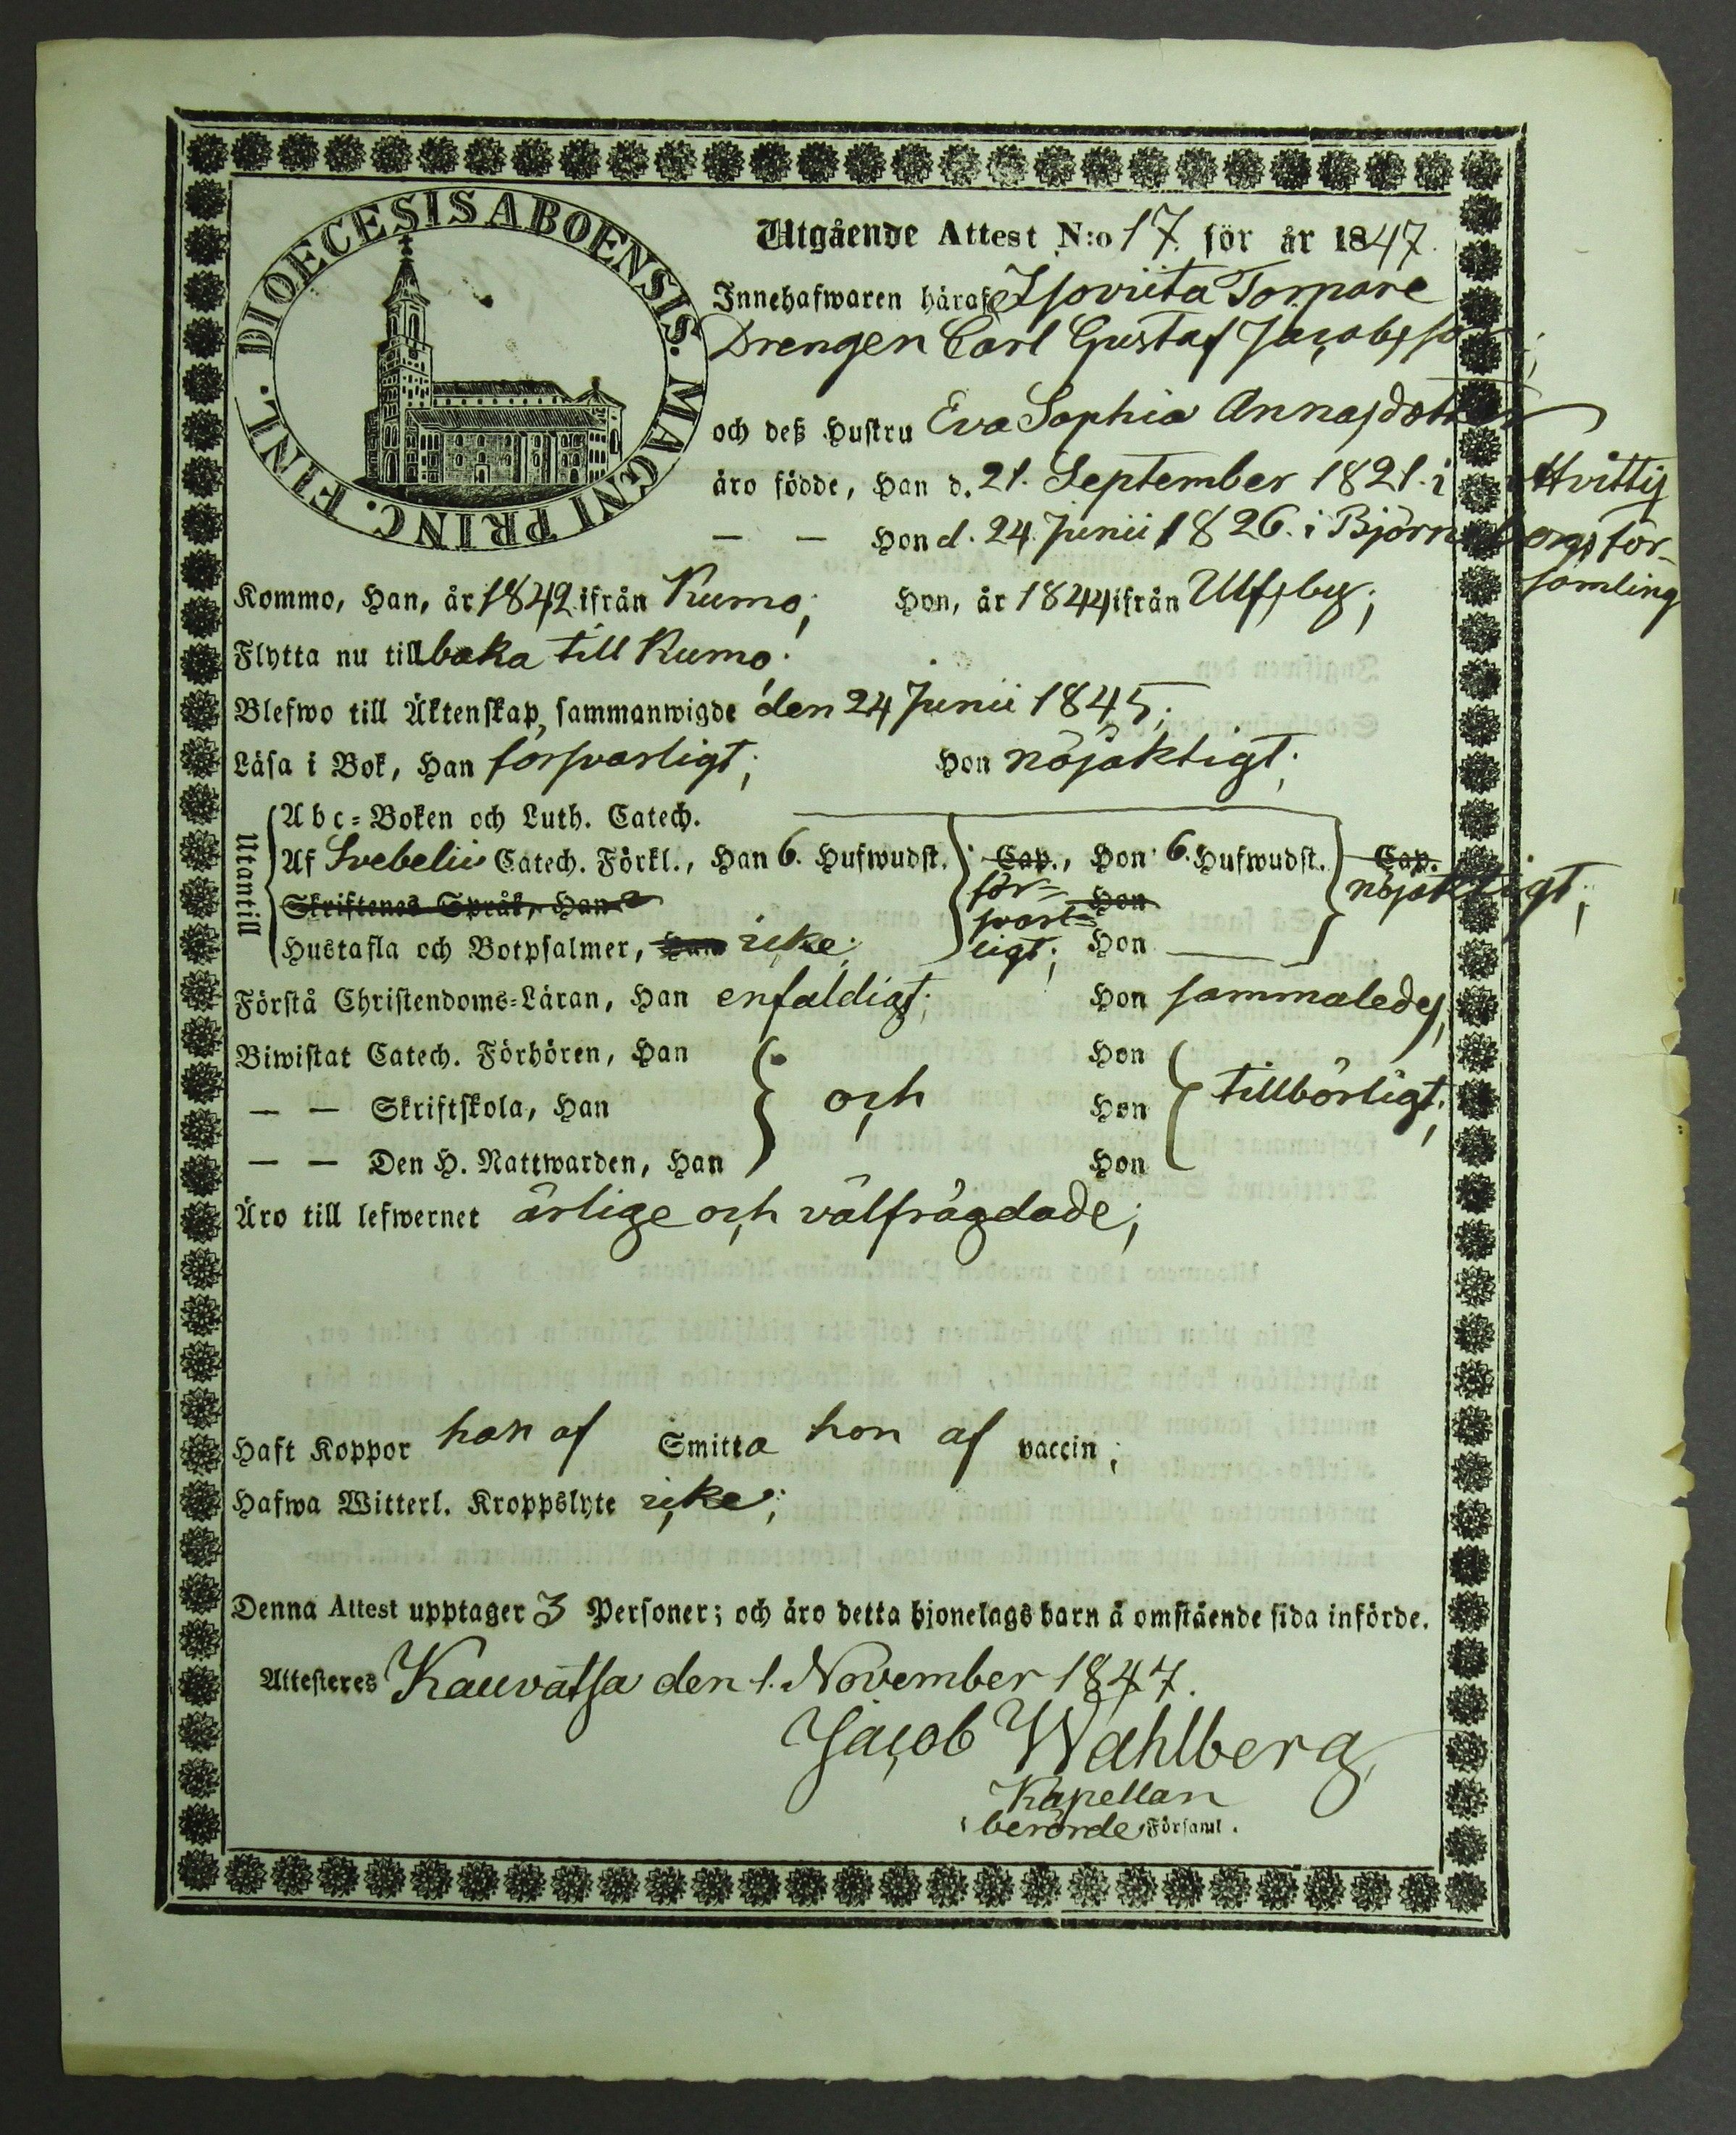 DIOECESIS ABOENSIS. MAGNI PRINC. FINL.
Utgående Attest N:o 17. för år 1847.
Innehafwaren häraf, Isoviita Torpare
Drengen Carl Gustaf Jacobsson;
och deß Hustru Eva Sophia Annasdotter
äro födde, Han d. 21. September 1821. i Hvittis
— — Hon d. 24. Junii 1826. i Björneborgs för-
samling
Kommo, Han, år 1842 ifrån Kumo; Hon, år 1844 ifrån Ulfsby;
Flytta nu tillbaka till Kumo;
Blefwo till Äktenskap sammanwigde den 24 Junii 1845;
Läsa i Bok, Han försvarligt; Hon nöjaktigt;
Utantill
Abc-Boken och Luth. Catech.
Af Svebelii Catech. Förkl., Han 6. Hufwudst. Cap., Hon 6. Hufwudst. Cap.
Skriftenes Språk, Han för- Hon nöjaktigt;
svar-
Hustafla och Botpsalmer, Han icke; ligt; Hon —
Förstå Christendoms-Läran, Han enfaldigt; Hon sammaledes;
Biwistat Catech. Förhören, Han Hon
— — Skriftskola, Han och Hon tillbörligt;
— — Den H. Nattwarden, Han Hon
Äro till lefwernet ärlige och välfrägdade;
Haft Koppor han af Smitta hon af vaccin;
Hafwa Witterl. Kroppslyte icke;
Denna Attest upptager 3 Personer; och äro detta hjonelags barn å omstående sida införde.
Attesteres Kauvatsa den 1. November 1847.
Jacob Wahlberg,
Kapellan
i berörde Församl.